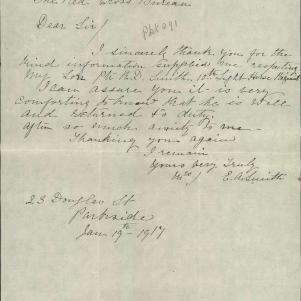 The Red Cross Bureau
Dear Sir/
I sincerely thank you for the
kind information supplied me respecting
My Son Pte R.D. Smith, 10th Light Horse Regiment
I can assure you it is very
comforting to know that he is well
and returned to duty
after so much anxiety to me.
Thanking you again
I remain
Yours Very Truly
Mrs/ E. A. Smith
23 Douglas St
Parkside
Jan 19th - 1917